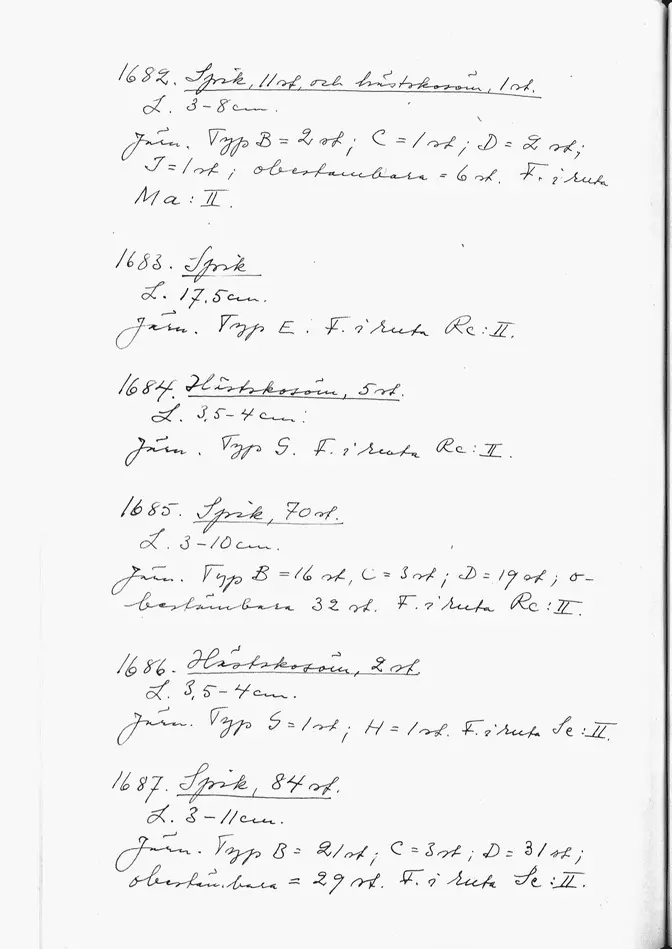 1682. Spik, 11 st, och hästskosöm, 1 st.
L. 3-8 cm.
Järn. Typ B = 2 st; C = 1 st; D = 2 st;
I = 1 st; obestämbara = 6 st. F. i ruta
Ma: II.
1683. Spik
L. 17,5 cm.
Järn. Typ E. F. i ruta Rc: II.
1684. Hästskosöm, 5 st.
L. 3,5-4 cm.
Järn. Typ G. F. i ruta Rc: II.
1685. Spik, 70 st.
L. 3-10 cm.
Järn. Typ B = 16 st, C = 3 st; D = 19 st; o-
bestämbara 32 st. F. i ruta Rc: II.
1686. Hästskosöm, 2 st
L. 3,5-4 cm.
Järn. Typ G = 1 st; H = 1 st. F. i ruta Sc: II.
1687. Spik, 84 st.
L. 3-11 cm.
Järn. Typ B = 21 st; C = 3 st; D = 31 st;
obestämbara = 29 st. F. i ruta Sc: II.